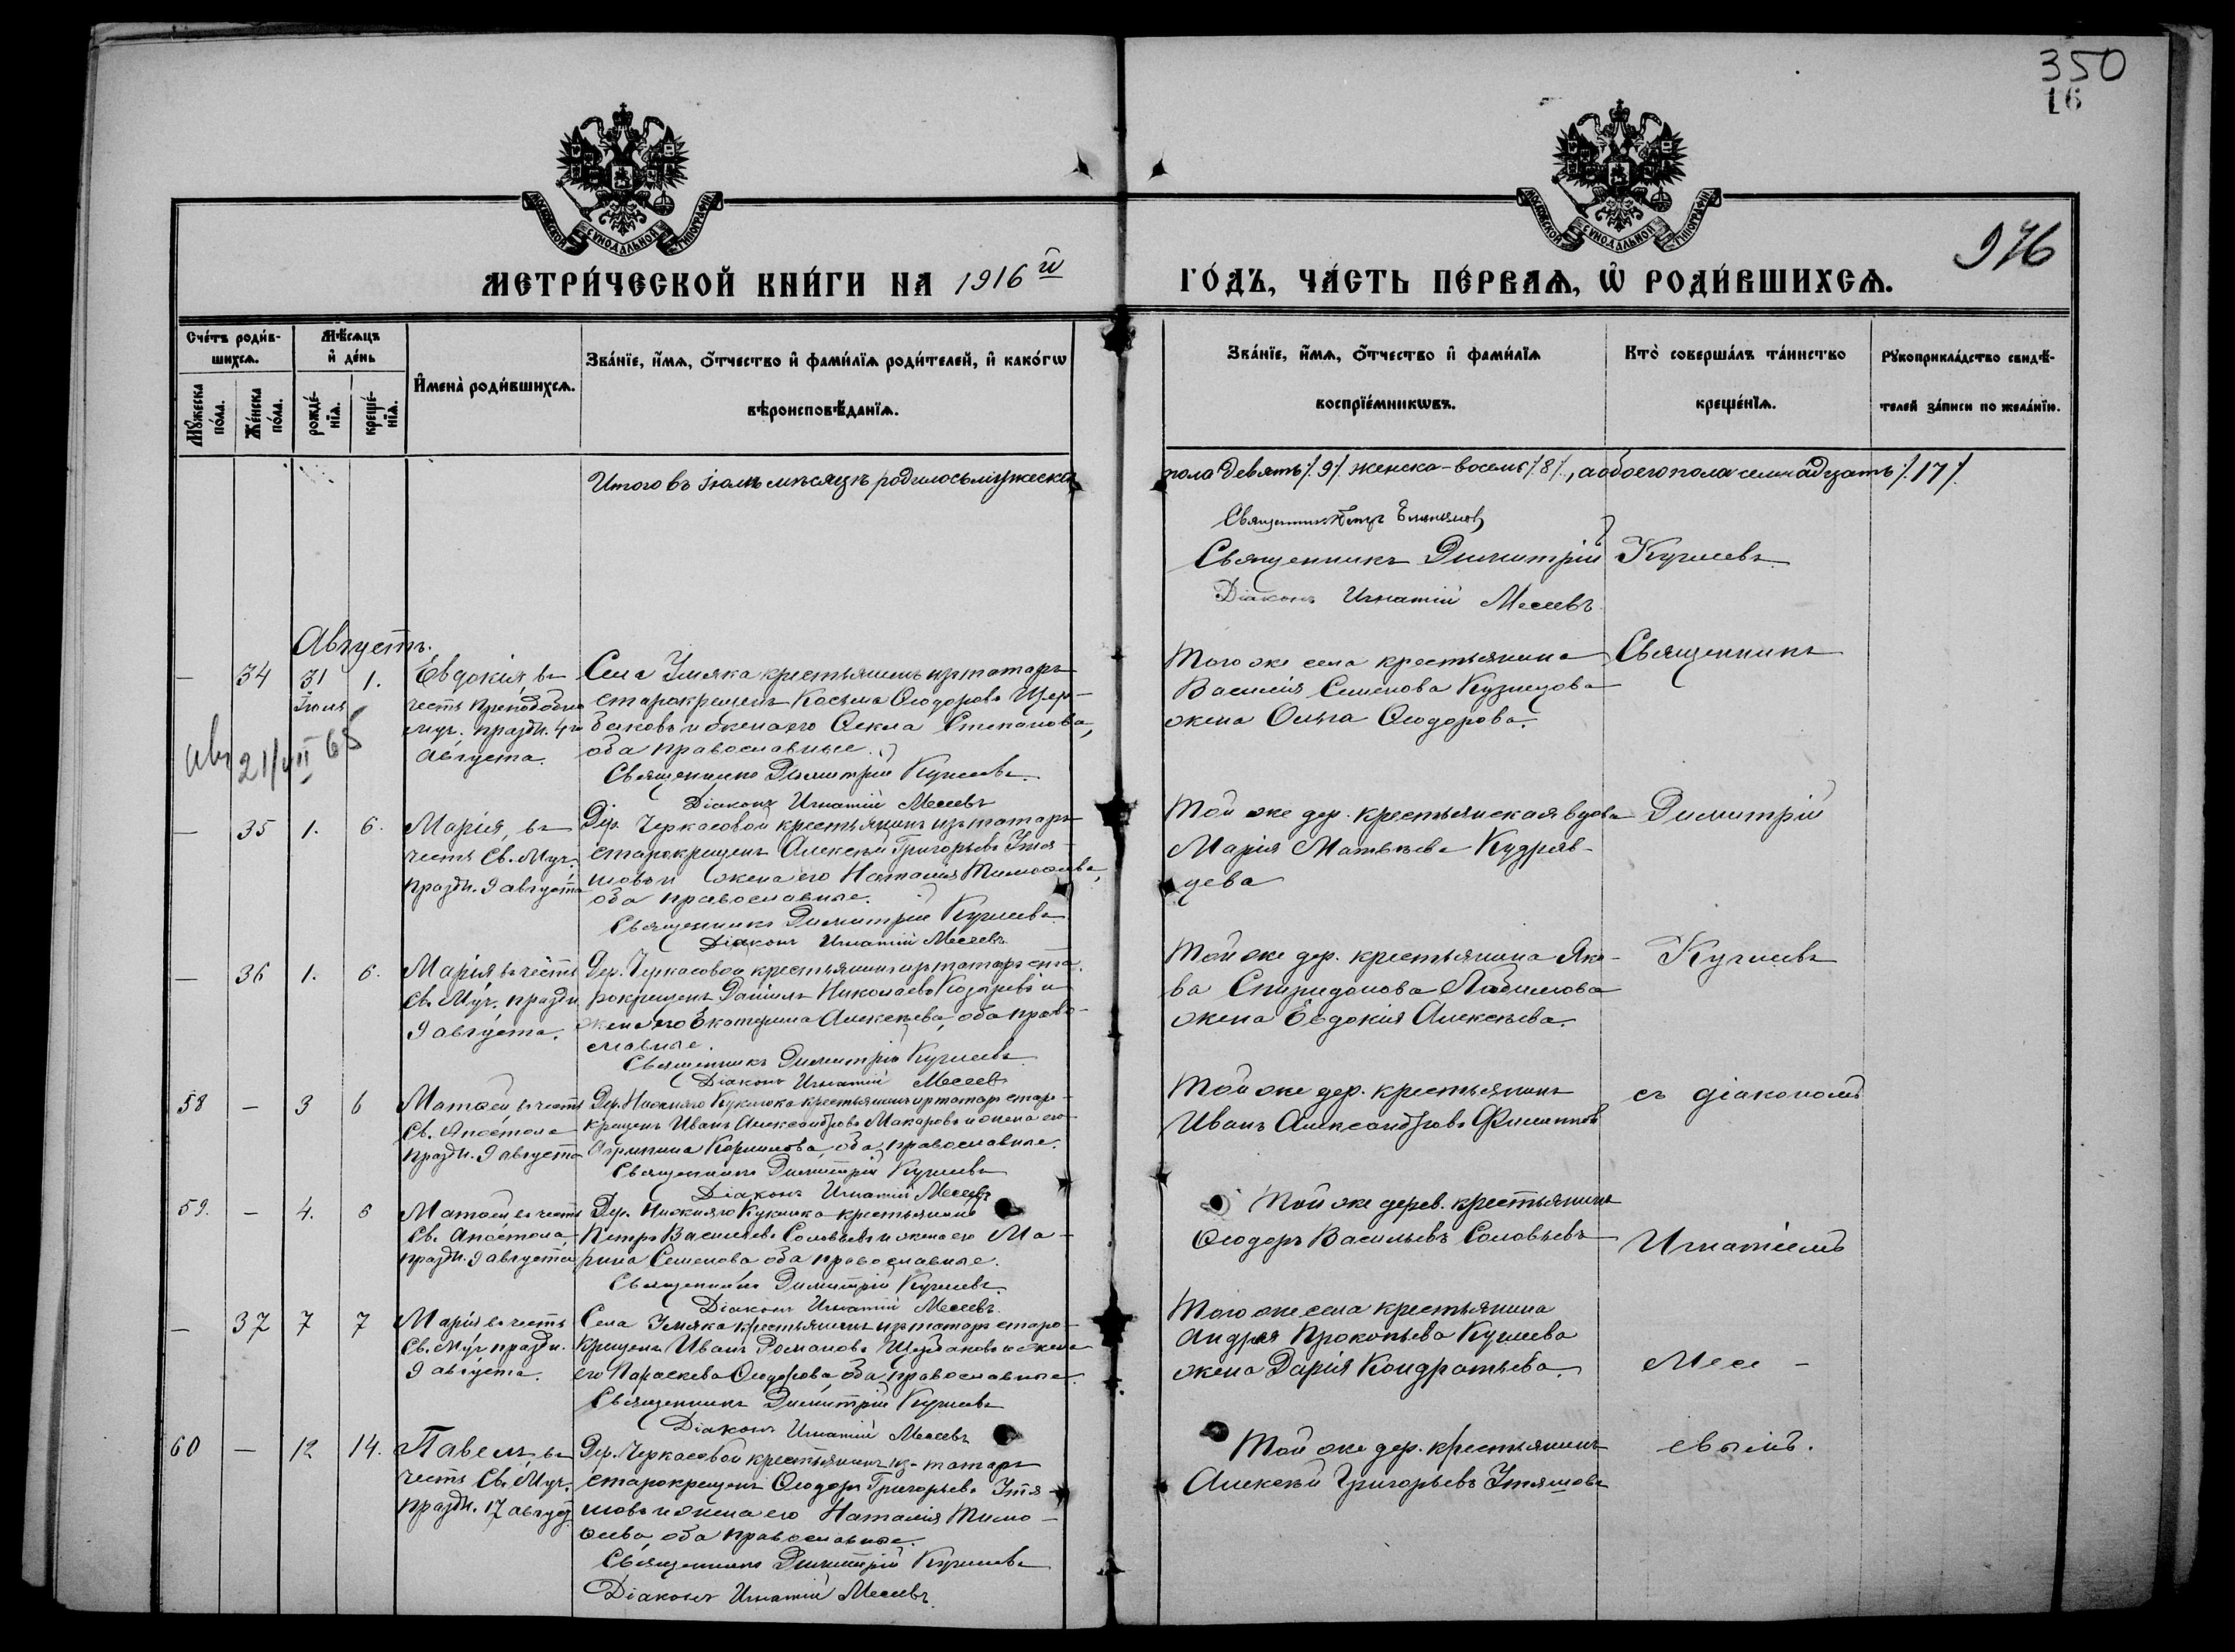 350
16
МОСКОВСКОЙ СѴНОДАЛЬНОЙ ТИПОГРАФІИ
МОСКОВСКОЙ СѴНОДАЛЬНОЙ ТИПОГРАФІИ
976
МЕТРИ́ЧЕСКОЙ КНИ́ГИ НА 1916й
ГО́ДЪ, ЧА́СТЬ ПЕ́РВАѦ, Ѡ҆ РОДИ́ВШИХСѦ.
Сче́тъ роди́в-
шихсѧ.
Мꙋ́жеска по́ла.
Же́нска по́ла.
Мѣ́сѧцъ
и҆ де́нь
рожде́-
нїѧ.
креще́-
нїѧ.
И҆мена̀ роди́вшихсѧ.
Зва́нїе, и҆́мѧ, ѻ҆́тчество и҆ фами́лїѧ роди́телей, и҆ како́гѡ
вѣроисповѣ́данїѧ.
Зва́нїе, и҆́мѧ, ѻ҆́тчество и҆ фами́лїѧ
воспрїе́мникѡвъ.
Кто̀ соверша́лъ та́инство
креще́нїѧ.
Рꙋкоприкла́дство свидѣ́-
телей за́писи по жела́нїю.
Итого въ Іюлѣ мѣсяцѣ родилось мужеска
пола девять /.9/. женска - восемь /.8/., а обоего пола семнадцать /.17/.
Священникъ Петръ
Священникъ Димитрій Кучмевъ
Діаконъ Игнатій Месевъ
Августъ.
— 34 31 Іюля 1.
Евдокія, въ
честь Преподобно
муч. праздн. 4го
Августа.
Села Умяка крестьянинъ изъ татаръ
старокрещенъ Косьма Ѳеодоровъ Щер-
баковъ и жена его Ѳекла Степанова,
оба православные.
Священникъ Димитрій Кучмевъ
Діаконъ Игнатій Месевъ
Того же села крестьянина
Василія Семенова Кузнецова
жена Ольга Ѳеодорова.
Священникъ
21/VII 65
— 35 1. 6.
Марія, въ
честь Св. Муч.
Праздн. 9 августа
Дер. Черкасовой крестьянинъ изъ татаръ
старокрещенъ Алексѣй Григорьевъ Утя-
шовъ и жена его Наталія Тимоѳеева,
оба православные.
Священникъ Димитрій Кучмевъ
Діаконъ Игнатій Месевъ
Той же дер. крестьянская вдова
Марія Матвѣева Кудряв-
цева
Димитрій
— 36 1. 6.
Марія, въ честь
Св. Муч. праздн.
9 августа.
Дер. Черкасовой крестьянинъ изъ татаръ ста-
рокрещенъ Даніилъ Николаевъ Козыревъ и
жена его Екатерина Алексѣева, оба право-
славные.
Священникъ Димитрій Кучмевъ
Діаконъ Игнатій Месевъ
Той же дер. крестьянина Яко-
ва Спиридонова
жена Евдокія Алексѣева.
Кучмевъ
58 — 3 6
Матѳей въ честь
Св. Апостола
Праздн. 9 августа
Дер. Нижняго Кукмока крестьянинъ изъ татаръ старо-
крещенъ Иванъ Александровъ Макаровъ и жена его
Агрипина оба православные.
Священникъ Димитрій Кучмевъ
Діаконъ Игнатій Месевъ
Той же дер. крестьянинъ
Иванъ Александровъ Филипповъ
съ діакономъ
59. — 4. 6
Матѳей въ честь
Св. Апостола
праздн. 9 августа
Дер. Нижняго Кукмока крестьянинъ
Петръ Васильевъ Соловьевъ и жена его Ма-
рина Семенова оба православные.
Священникъ Димитрій Кучмевъ
Діаконъ Игнатій Месевъ.
Той же дерев. крестьянинъ
Ѳеодоръ Васильевъ Соловьевъ
Игнатіемъ
— 37 7 7
Марія въ честь
Св. Муч. праздн.
9 августа.
Села Умяка крестьянинъ изъ татаръ старо-
крещенъ Иванъ Романовъ Щербаковъ и жена
его Параскева Ѳеодорова, оба православные.
Священникъ Димитрій Кучмевъ
Діаконъ Игнатій Месевъ
Того же села крестьянина
Андрея Прокопьева Кучмева
жена Дарія Кондратьева.
Месе-
60 — 12 14.
Павелъ, въ
честь Св. Муч.
Праздн. 17 август
Дер. Черкасовой крестьянинъ из-татаръ
старокрещенъ Ѳеодоръ Григорьевъ Утя-
шовъ и жена его Наталія Тимо-
ѳеева, оба православные.
Священникъ Димитрій Кучмевъ
Діаконъ Игнатій Месевъ.
Той же дер. крестьянинъ
Алексѣй Григорьевъ Утяшовъ
евымъ.